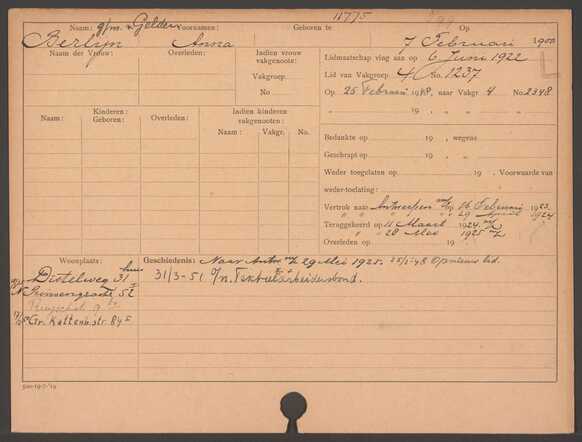 11775
Naam: g/m v Gelder Voornamen: Geboren te Op
Berlijn Anna 7 Februari 1900
Naam der Vrouw: Overleden: Indien vrouw vakgenoote:
Vakgroep.
No
Lidmaatschap ving aan op 6 Juni 1922
Lid van Vakgroep 4 No. 1237
Op 25 Februari 1948, naar Vakgr. 4 No 2348
„ „ 19 , „ „ „
Kinderen: Indien kinderen vakgenooten:
Naam: Geboren: Overleden: Naam: Vakgr. No.
Bedankte op 19 , wegens
Geschrapt op 19 , „
Weder toegelaten op 19 , Voorwaarde van
weder-toelating:
Vertrok naar Antwerpen op 16 Februari 1923
„ „ „ „ 29 April 1924
Teruggekeerd op 11 Maart 1924
„ „ 28 Mei 1925
Overleden op 19
Woonplaats: Geschiedenis: Naar Antw 29 Mei 1925. 25/2-48 Opnieuw lid.
Distelweg 31 huis 31/3-51 O/n. Textielarbeidersbond.
N. Prinsengracht 52
Gr. Kattenb. str. 84
500-19-7-'19